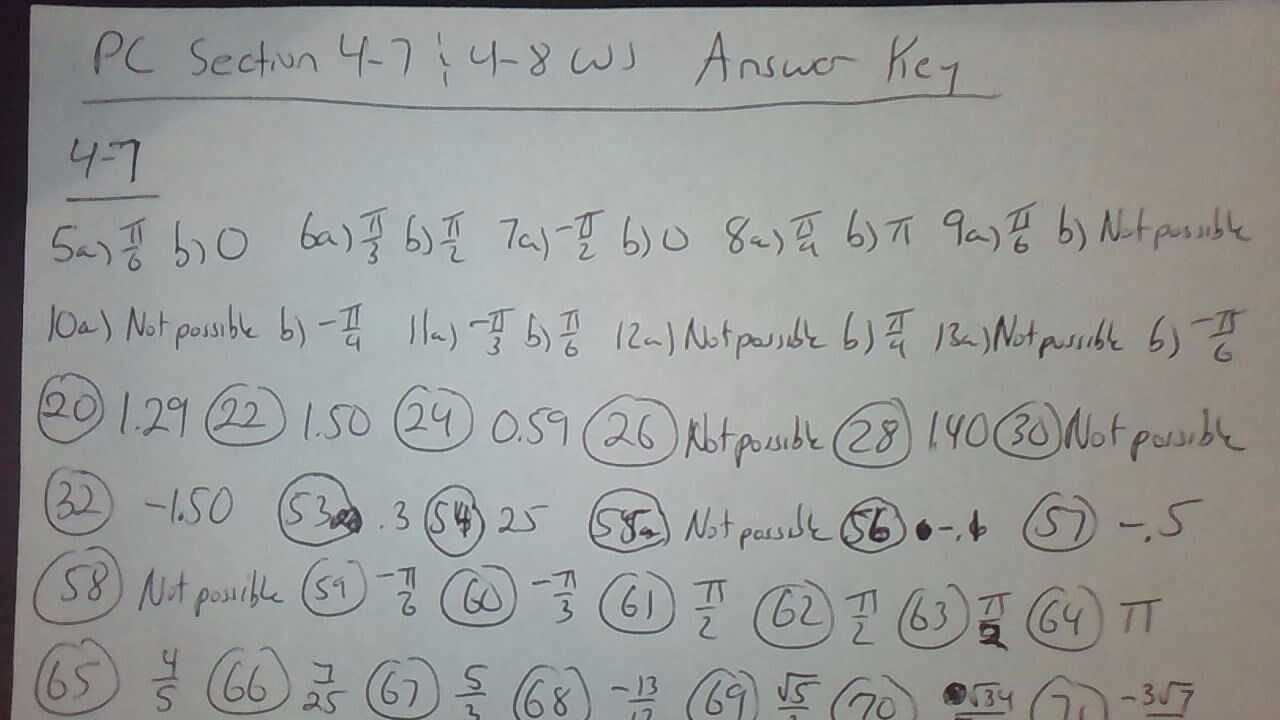 PC Section 4-7 & 4-8 WS Answer Key
4-7
5a) π/6 b) 0 6a) π/3 b) π/2 7a) -π/2 b) 0 8a) π/4 b) π 9a) π/6 b) Not possible
10a) Not possible b) -π/4 11a) -π/3 b) π/6 12a) Not possible b) π/4 13a) Not possible b) -π/6
20 1.29 22 1.50 24 0.59 26 Not possible 28 1.40 30 Not possible
32 -1.50 53 .3 54 25 55 Not possible 56 -.1 57 -.5
58 Not possible 59 -π/6 60 -π/3 61 π/2 62 π/2 63 π/2 64 π
65 4/5 66 7/25 67 5/3 68 69 70 71